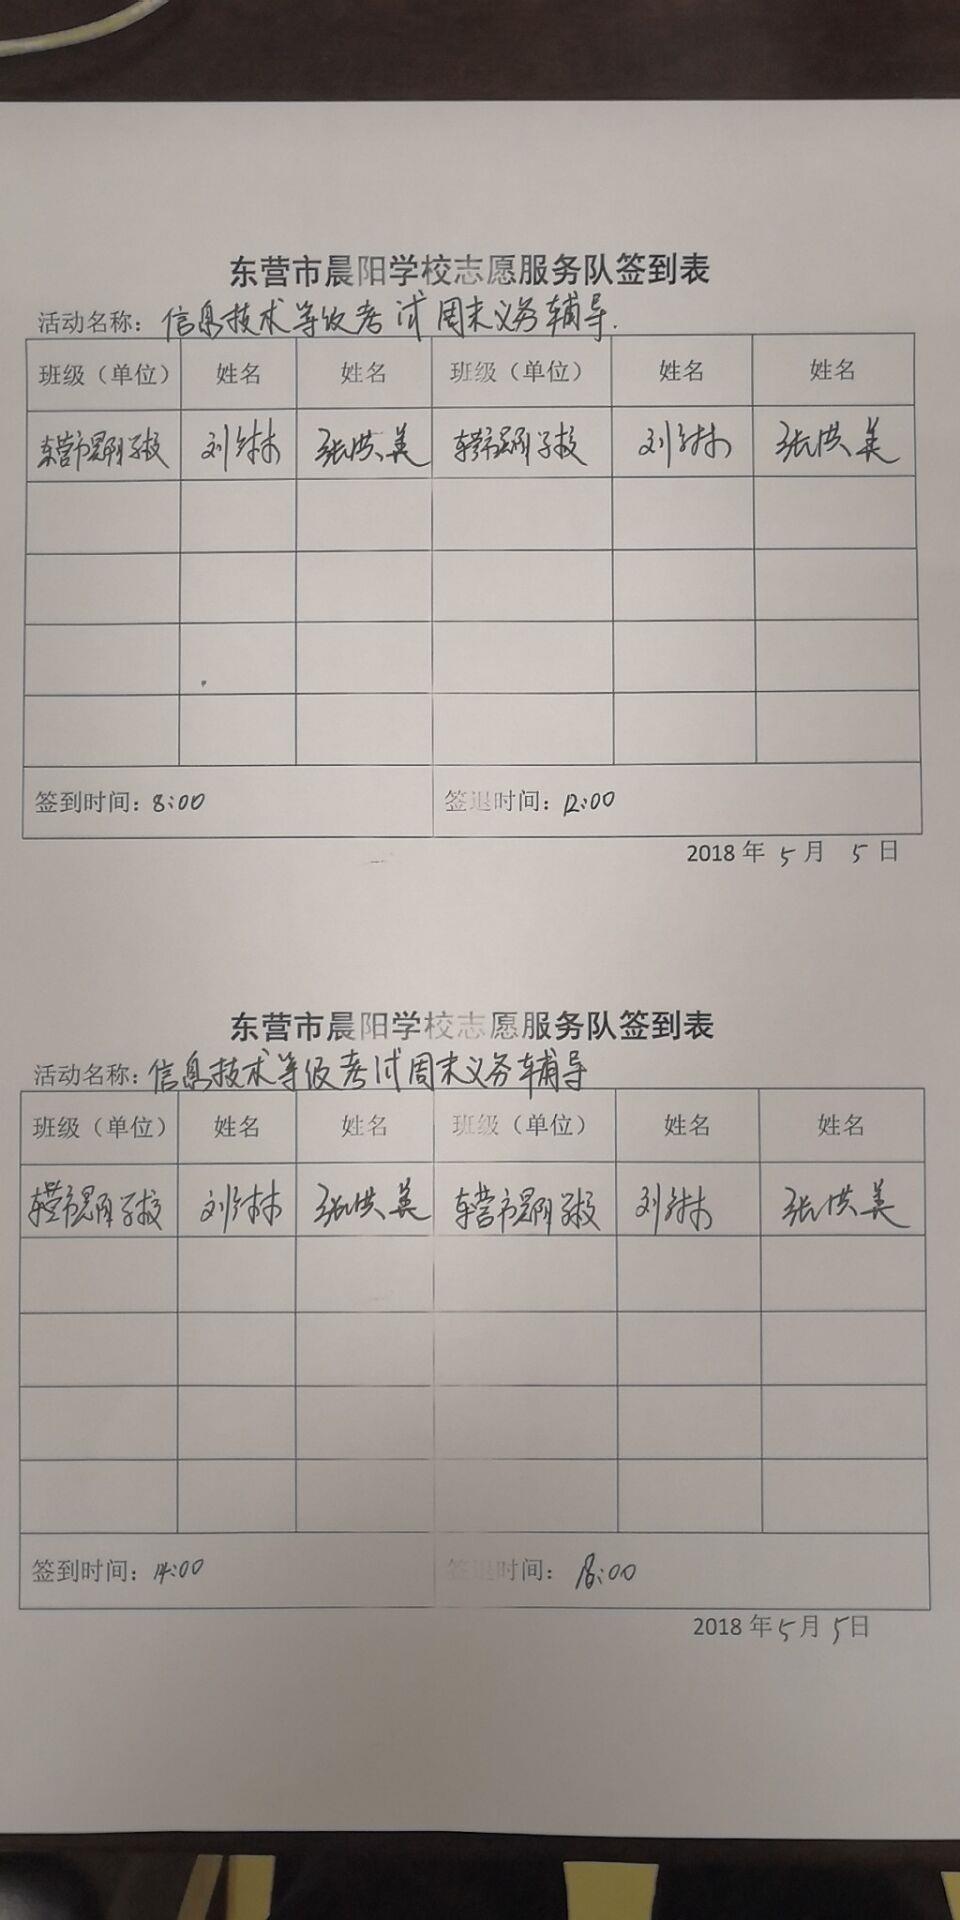 东营市晨阳学校志愿服务队签到表
活动名称：信息技术等级考试周末义务辅导.
班级（单位） 姓名 姓名 班级（单位） 姓名 姓名
东营市晨阳学校 刘 张洪美 东营市晨阳学校 刘 张洪美
签到时间：8:00 签退时间：12:00
2018 年 5 月 5 日
东营市晨阳学校志愿服务队签到表
活动名称：信息技术等级考试周末义务辅导
班级（单位） 姓名 姓名 班级（单位） 姓名 姓名
东营市晨阳学校 刘 张洪美 东营市晨阳学校 刘 张洪美
签到时间：14:00 签退时间：18:00
2018 年 5 月 5 日